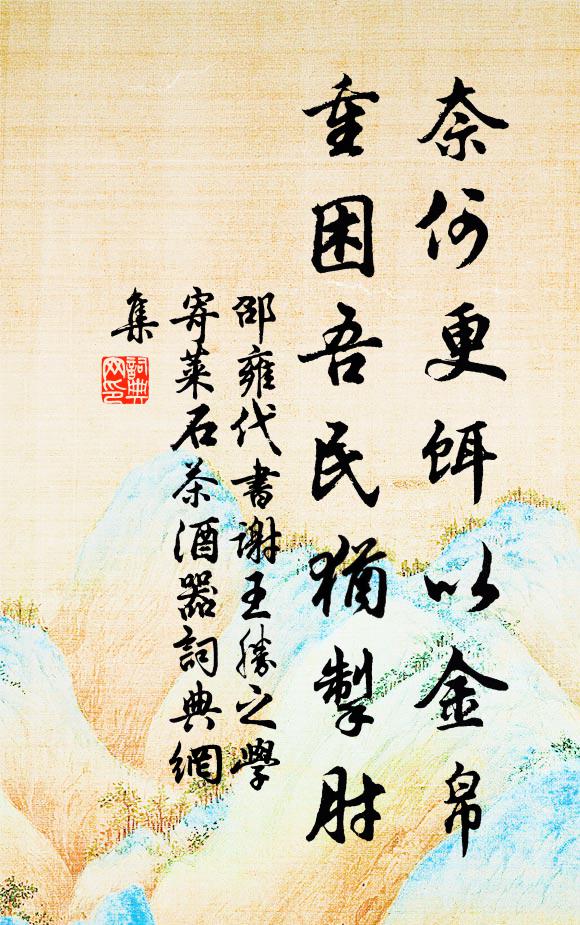 奈何更餌以金帛
重困吾民猶掣肘
邵雍代書謝王勝之學
寄萊石茶酒器詞典網
集
詞典
网印